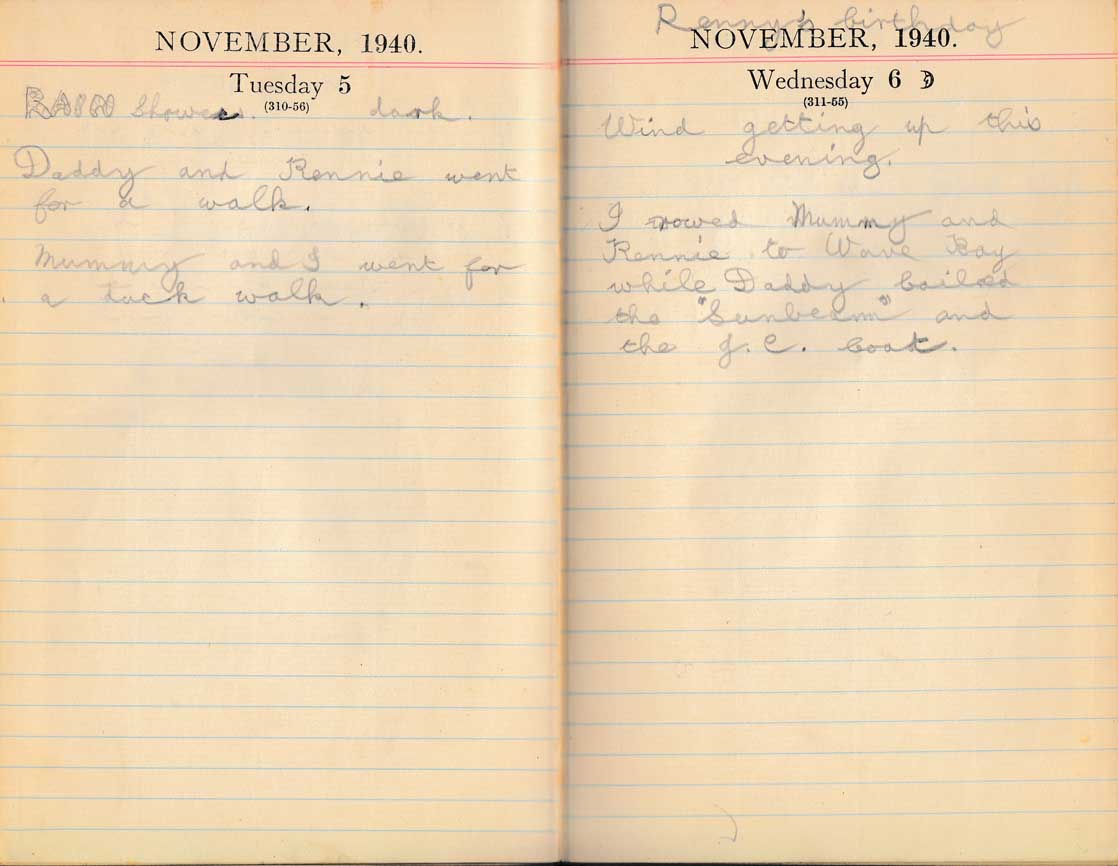 NOVEMBER, 1940.
Tuesday 5
(310-56)
RAIN Showers. dark.
Daddy and Rennie went
for a walk.
Mummy and I went for
a tuck walk.
Renny's birthday
NOVEMBER, 1940.
Wednesday 6 ☽
(311-55)
Wind getting up this
evening.
I rowed Mummy and
Rennie to Wave Bay
while Daddy bailed
the "Sunbeam" and
the J.C. boat.